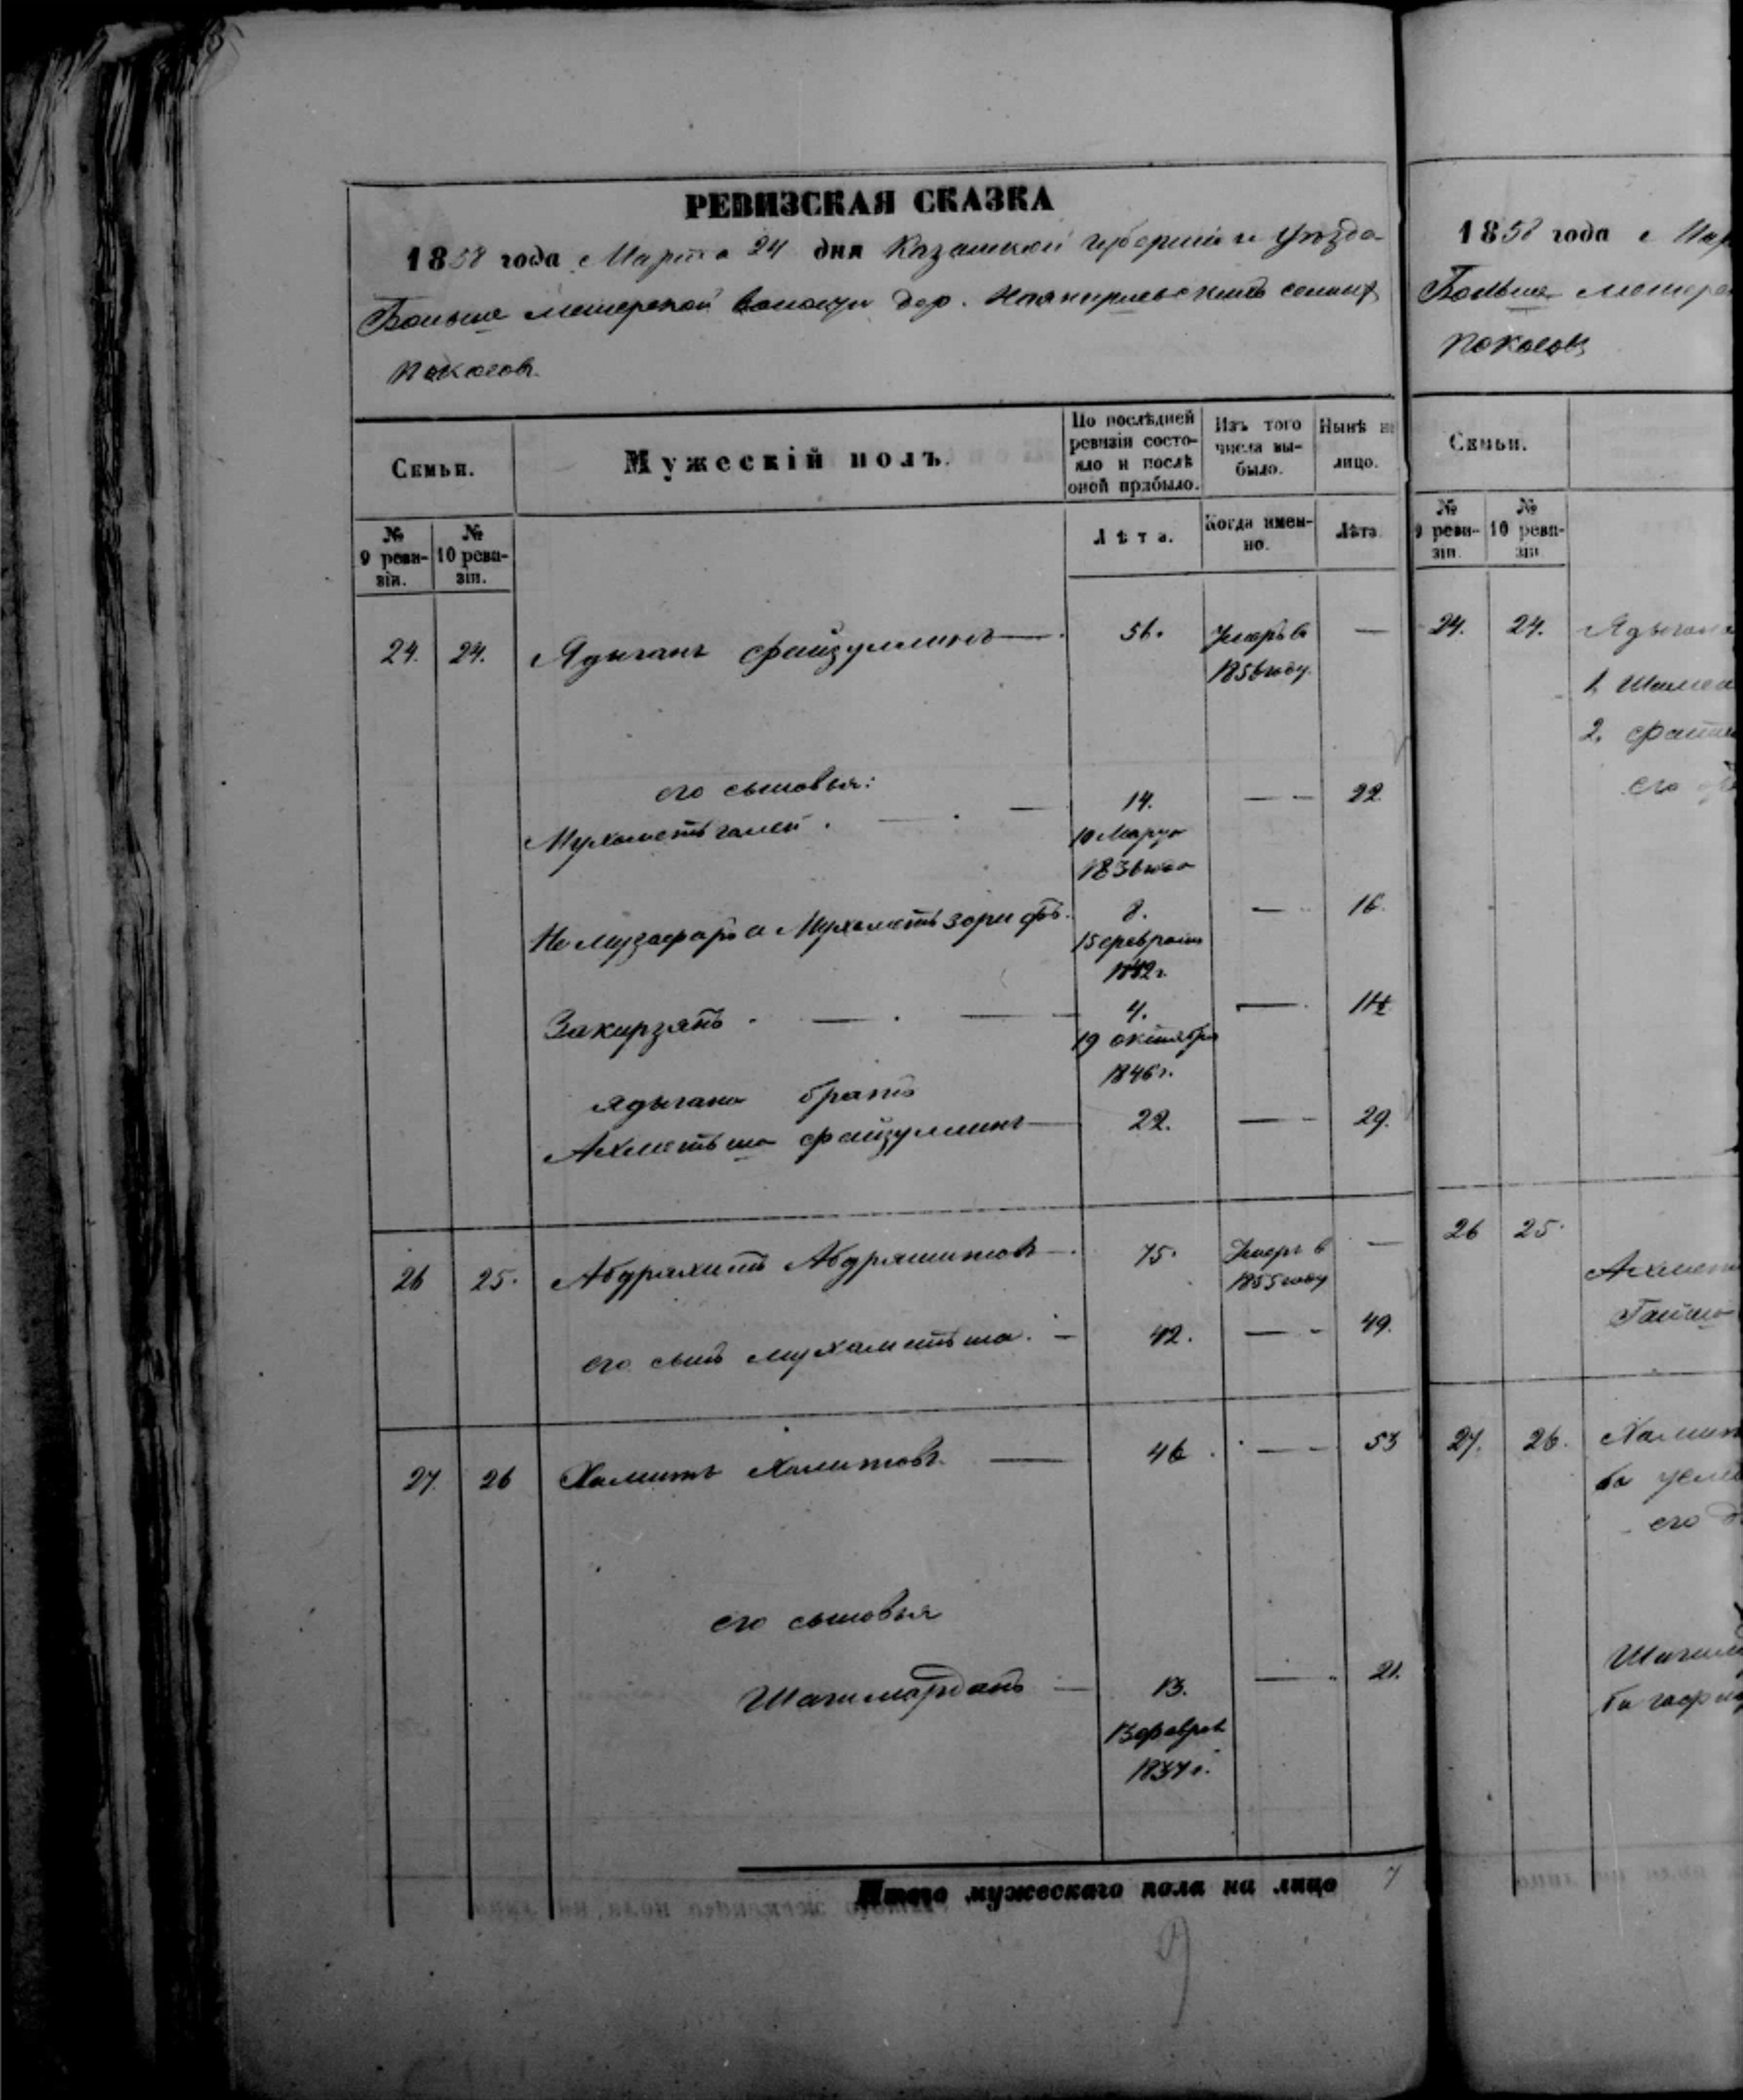 РЕВИЗСКАЯ СКАЗКА
1858 года Марта 24 дня Казанской губернии и уѣзда
Больше меmерской волости дер.
покосов
Семьи.
Мужескій полъ.
По послѣдней ревизіи состояло и послѣ оной прибыло.
Изъ того числа выбыло.
Нынѣ на лицо.
№ 9 ревизіи.
№ 10 ревизіи.
Лѣта.
Когда именно.
Лѣта.
24. 24. Ядыганъ Файзуллинъ — 56. Умеръ в —
1856 году.
его сыновья:
Мухаметьгалей . — . — 14. — 22.
10 Марта
1836 года
Не музафаръ а Мухаметьзарифъ. 8. — 16.
15 февраля
1842 г.
Закирзянъ . — . — 4. — 11½
19 октября
1846 г.
Ядыгана братъ
Ахметьша Файзуллинъ — 22. — 29.
26 25. Абдрахимъ Абдряшитовъ — 75. Умеръ в —
1855 году
его сынъ мухаметьша . — 42. — 49.
27. 26 Хамитъ Хамитовъ — 46. — 53
его сыновья
Шагимарданъ — 13. — 21.
13 феврал
1837 г.
Итого мужескаго пола на лицо 7
1858 года Мар
Больше
покосовъ
Семьи.
№ 9 ревизіи.
№ 10 ревизіи.
24. 24. Ядыгана
1,
2.
его
26 25.
Ахмет
27. 26. Хамит
его д
Шагим